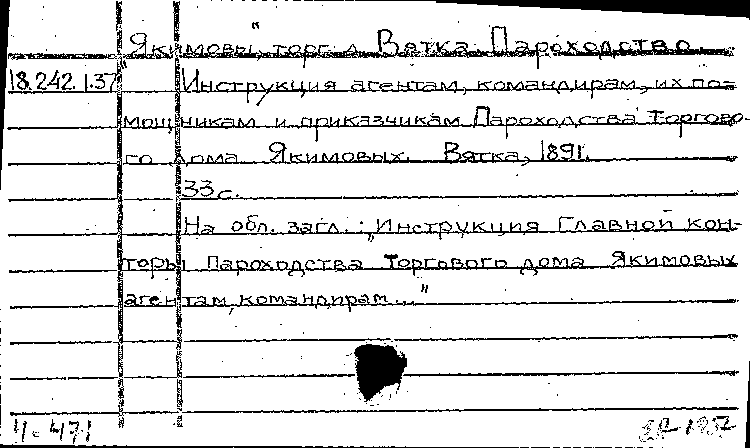 „Якимовы", торг. д. Вятка. Пароходство
18.242.1.37 Инструкция агентам, командирам, их по-
мощникам и приказчикам Пароходства Торгово-
го дома Якимовых. Вятка, 1891.
33 с.
На обл. загл.: „Инструкция Главной кон-
торы Пароходства Торгового дома Якимовых
агентам, командирам..."
4-471